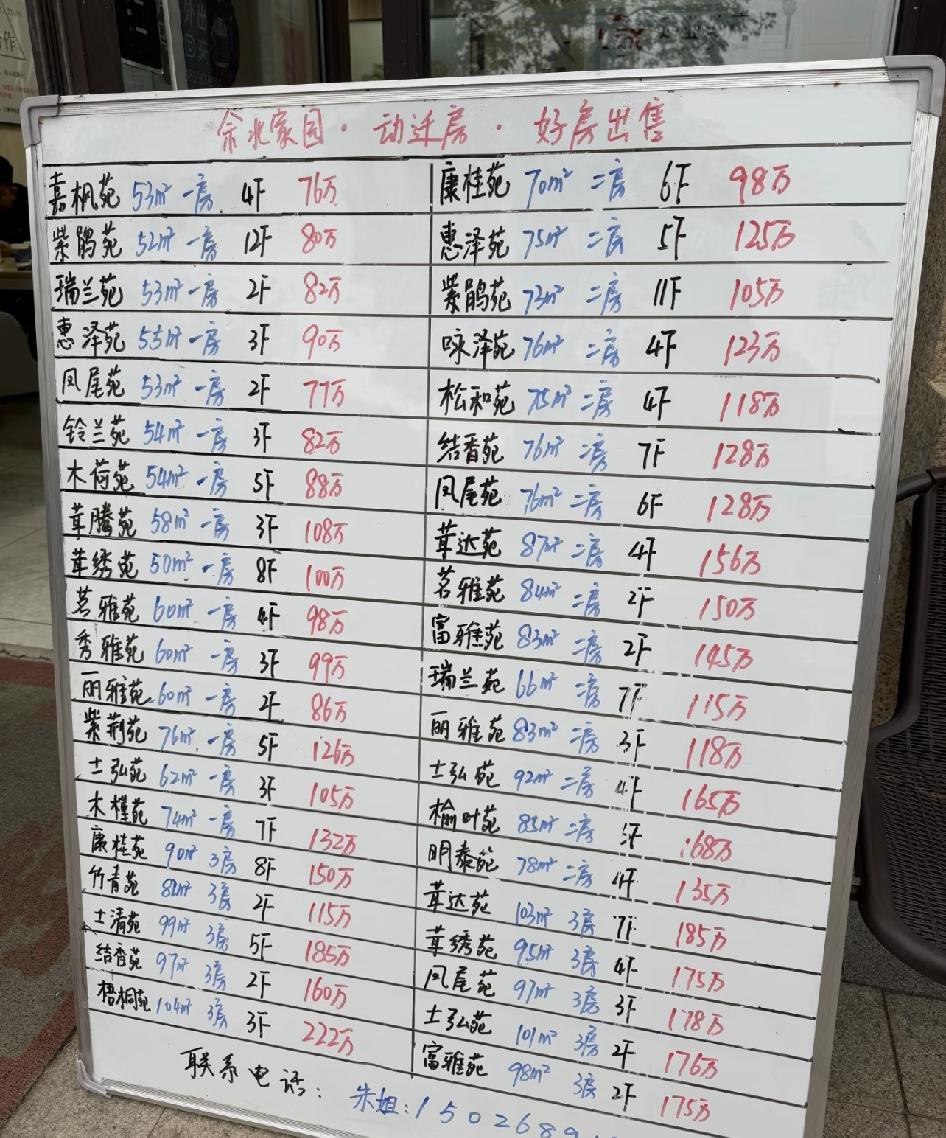 佘北家园·动迁房·好房出售
嘉枫苑 53m² 一房 4F 76万
紫鹃苑 52m² 一房 12F 80万
瑞兰苑 53m² 一房 2F 82万
惠泽苑 55m² 一房 3F 90万
凤尾苑 53m² 一房 2F 77万
铃兰苑 54m² 一房 3F 82万
木荷苑 54m² 一房 5F 88万
華腾苑 58m² 一房 3F 108万
華绣苑 50m² 一房 8F 100万
茗雅苑 60m² 一房 4F 98万
秀雅苑 60m² 一房 3F 99万
丽雅苑 60m² 一房 2F 86万
紫荆苑 76m² 一房 5F 126万
士弘苑 62m² 一房 3F 105万
木槿苑 74m² 一房 7F 132万
康桂苑 90m² 3房 8F 150万
竹青苑 3房 2F 115万
士清苑 99m² 3房 5F 185万
结香苑 97m² 3房 2F 160万
梧桐苑 104m² 3房 3F 222万
康桂苑 70m² 二房 6F 98万
惠泽苑 75m² 二房 5F 125万
紫鹃苑 73m² 二房 11F 105万
咏泽苑 76m² 二房 4F 123万
松和苑 75m² 二房 4F 118万
结香苑 76m² 二房 7F 128万
凤尾苑 76m² 二房 6F 128万
華达苑 87m² 二房 4F 156万
茗雅苑 84m² 二房 2F 150万
富雅苑 83m² 二房 2F 145万
瑞兰苑 66m² 二房 7F 115万
丽雅苑 83m² 二房 3F 118万
士弘苑 92m² 二房 4F 165万
榆叶苑 二房 168万
明泰苑 78m² 二房 4F 135万
華达苑 103m² 3房 7F 185万
華绣苑 95m² 3房 4F 175万
凤尾苑 97m² 3房 3F 178万
士弘苑 101m² 3房 2F 176万
富雅苑 98m² 3房 2F 175万
联系电话：朱姐：1502689